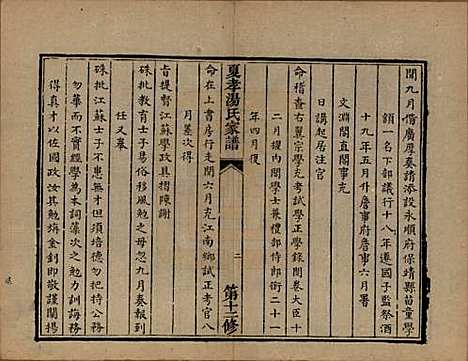 聞九月偕廣厚奏請添設永順府保靖縣苗童學
額一名下部議行十八年遷國子監祭酒
十九年五月升詹事府詹事六月署
文淵閣直閣事充
日講起居注官
命稽查右翼宗學充考試學正學錄閱卷大臣十
二月擢內閣學士兼禮部侍郎銜二十一
年四月復
夏孝湯氏家譜
二
第十二修
命在上書房行走閏六月充江南鄉試正考官八
月差次得
旨提督江蘇學政具摺陳謝
硃批教育士子易俗移風勉之毋忽九月奏報到
任又奉
硃批江蘇士子不患無才但須培德勿把持公務
勿華而不實經學為本詞藻次之勉力訓迪
得真才以佐國政汝其勉旃金釗即敬謹闡揚